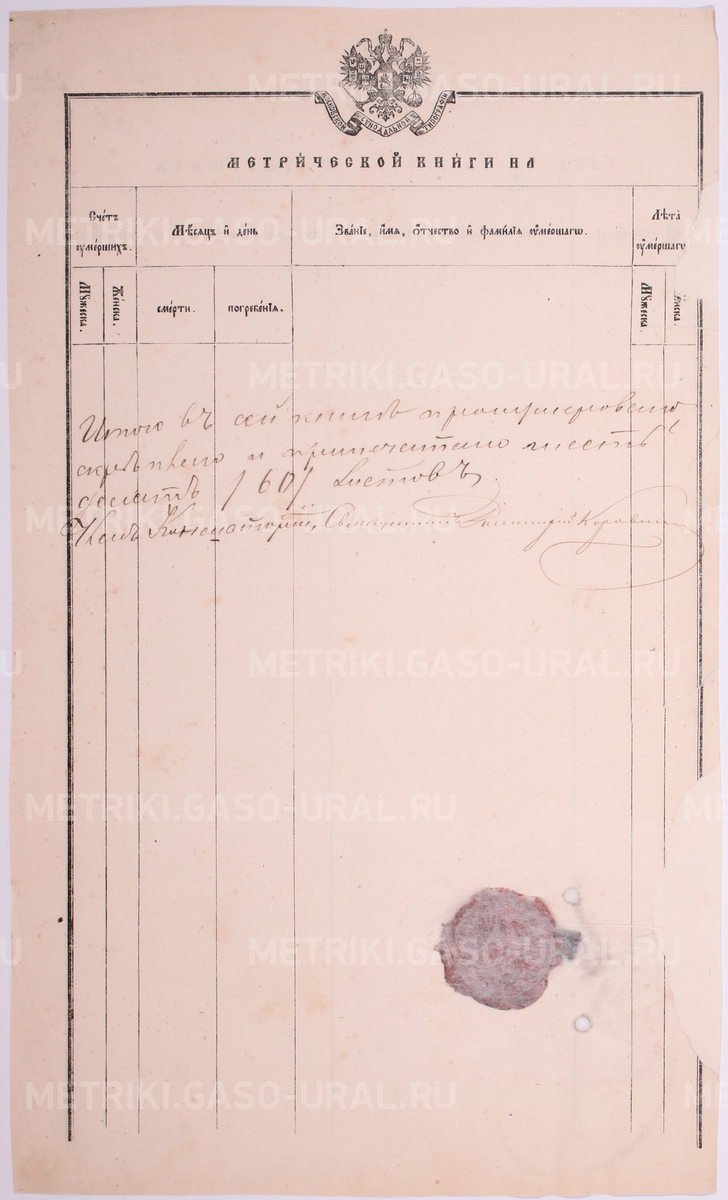 МОСКОВСКОЙ СѴНОДАЛЬНОЙ ТИПОГРАФІИ
МЕТРИ́ЧЕСКОЙ КНИ́ГИ НА
Сче́тъ
оуме́ршихъ.
Мѣ́сяцъ и҆ де́нь
Зва́нїе, и҆́мя, ѻ҆́тчество и҆ фамилїя оуме́ршагѡ.
Лѣта̀
оуме́ршагѡ
Мꙋ́жеска.
Же́нска.
сме́рти.
погребе́нїя.
Мꙋ́жеска.
нска.
Итого въ сей книгѣ пронумеровано
скрѣплено и припечатано шесть
десятъ /60/ листовъ.
Членъ Консисторіи, Священникъ Димитрій
METRIKI.GASO-URAL.RU
METRIKI.GASO-URAL.RU
METRIKI.GASO-URAL.RU
METRIKI.GASO-URAL.RU
METRIKI.GASO-URAL.RU
METRIKI.GASO-URAL.RU
METRIKI.GASO-URAL.RU
METRIKI.GASO-URAL.RU